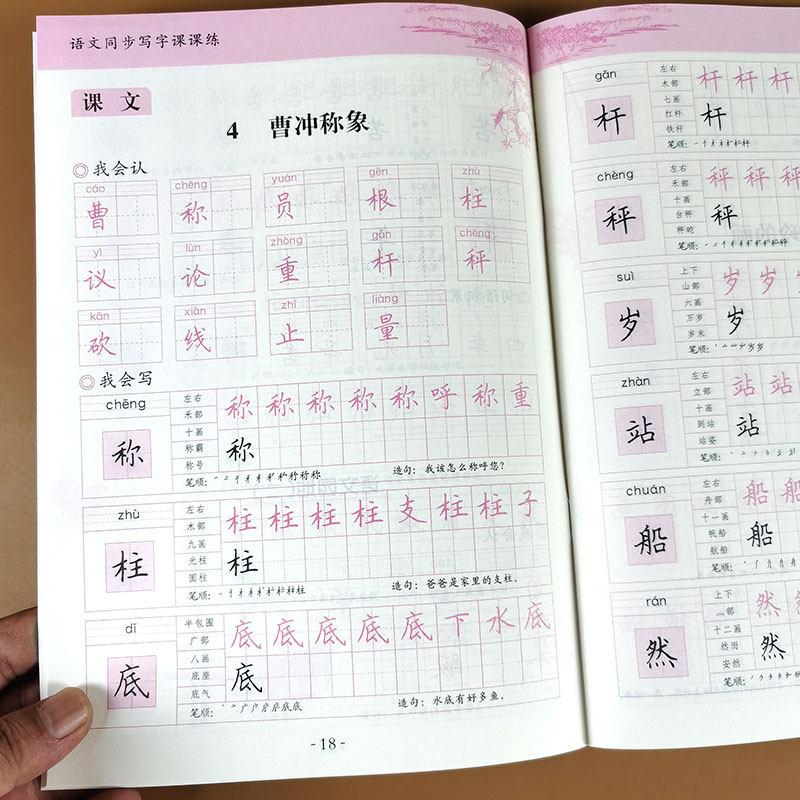 语文同步写字课课练
课 文
4 曹冲称象
◎我会认
cáo chēng yuán gēn zhù
曹 称 员 根 柱
yì lùn zhòng gǎn chèng
议 论 重 杆 秤
kǎn xiàn zhǐ liàng
砍 线 止 量
◎我会写
chēng
称
左右
禾部
十画
称霸
称号
称 称 称 称 称 呼 称 重
称
笔顺:
造句:我该怎么称呼您?
zhù
柱
左右
木部
九画
光柱
圆柱
柱 柱 柱 柱 支 柱 柱 子
柱
笔顺:
造句:爸爸是家里的支柱。
dǐ
底
半包围
广部
八画
底座
底气
底 底 底 底 底 下 水 底
底
笔顺:
造句:水底有好多鱼。
-18-
gǎn
杆
左右
木部
七画
杠杆
铁杆
杆 杆 杆
杆
笔顺:
chèng
秤
左右
禾部
十画
台秤
秤砣
秤 秤 秤
秤
笔顺:
suì
岁
上下
山部
六画
万岁
岁末
岁 岁
岁
笔顺:
zhàn
站
左右
立部
十画
到站
站姿
站 站
站
笔顺:
chuán
船
左右
舟部
十一画
帆船
航船
船 船
船
笔顺:
rán
然
上下
灬部
十二画
然而
安然
然 然
然
笔顺: